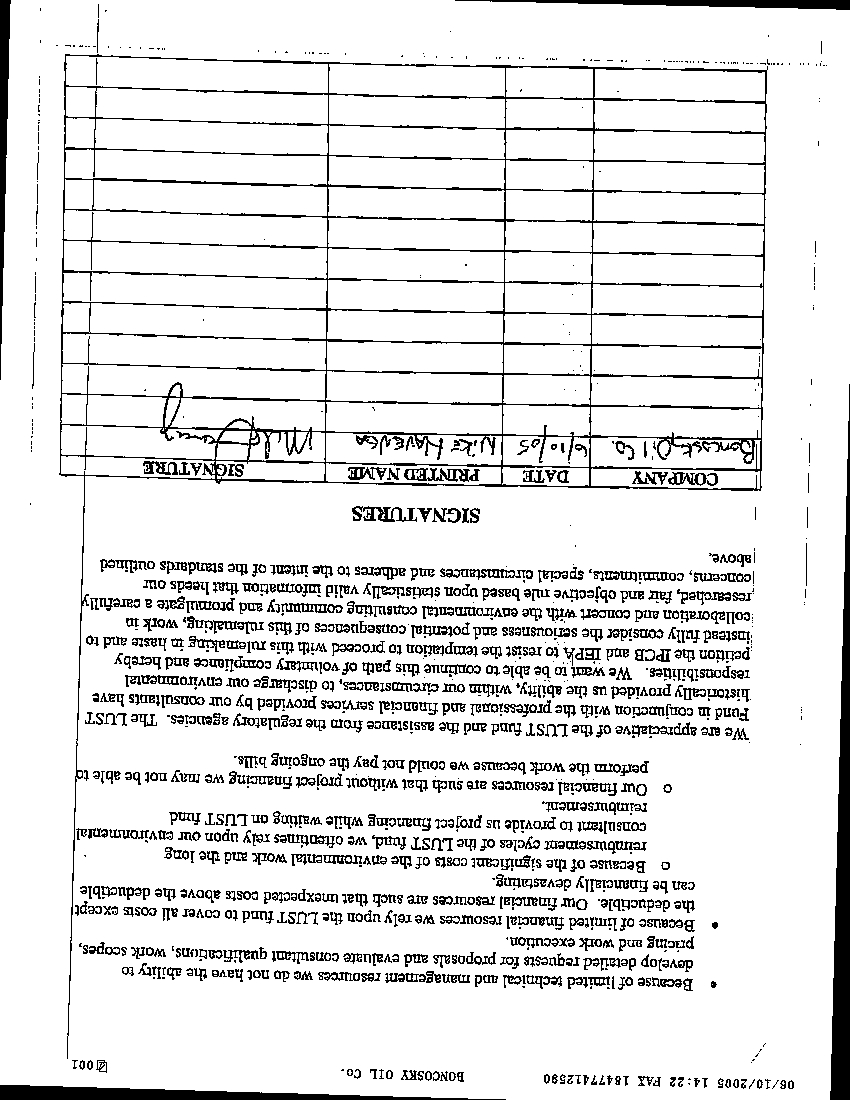 06/10/2005 14:22 FAX 18477412590 BONCOSKY OIL CO. 001
• Because of limited technical and management resources we do not have the ability to
develop detailed requests for proposals and evaluate consultant qualifications, work scopes,
pricing and work execution.
• Because of limited financial resources we rely upon the LUST fund to cover all costs except
the deductible. Our financial resources are such that unexpected costs above the deductible
can be financially devastating.
o Because of the significant costs of the environmental work and the long
reimbursement cycles of the LUST fund, we oftentimes rely upon our environmental
consultant to provide us project financing while waiting on LUST fund
reimbursement.
o Our financial resources are such that without project financing we may not be able to
perform the work because we could not pay the ongoing bills.
We are appreciative of the LUST fund and the assistance from the regulatory agencies. The LUST
Fund in conjunction with the professional and financial services provided by our consultants have
historically provided us the ability, within our circumstances, to discharge our environmental
responsibilities. We want to be able to continue this path of voluntary compliance and hereby
petition the IPCB and IEPA to resist the temptation to proceed with this rulemaking in haste and to
instead fully consider the seriousness and potential consequences of this rulemaking, work in
collaboration and concert with the environmental consulting community and promulgate a carefully
researched, fair and objective rule based upon statistically valid information that heeds our
concerns, commitments, special circumstances and adheres to the intent of the standards outlined
above.
SIGNATURES
COMPANY DATE PRINTED NAME SIGNATURE
Boncosky Oil Co. 6/10/05 Mike